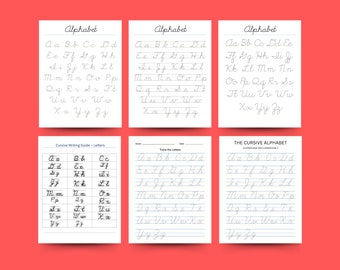 Alphabet
Aa Bb Cc Dd
Ee Ff Gg Hh
Ii Jj Kk Ll
Mm Nn Oo Pp
Qq Rr Ss Tt
Uu Vv Ww
Xx Yy Zz
Alphabet
Aa Bb Cc Dd
Ee Ff Gg Hh
Ii Jj Kk Ll
Mm Nn Oo Pp
Qq Rr Ss Tt
Uu Vv Ww
Xx Yy Zz
Alphabet
Aa Bb Cc Dd
Ee Ff Gg Hh
Ii Jj Kk Ll
Mm Nn Oo Pp
Qq Rr Ss Tt
Uu Vv Ww
Xx Yy Zz
Cursive Writing Guide – Letters
Aa Bb Cc
Dd Ee Ff
Gg Hh Ii
Jj Kk Ll
Mm Nn Oo
Pp Qq Rr
Ss Tt Uu
Vv Ww Xx
Yy Zz
Trace the Letters
Aa Bb Cc Dd
Ee Ff Gg Hh
Ii Jj Kk Ll
Mm Nn Oo Pp
Qq Rr Ss Tt
Uu Vv Ww Xx
Yy Zz
THE CURSIVE ALPHABET
Aa Bb Cc Dd
Ee Ff Gg Hh
Ii Jj Kk Ll
Mm Nn Oo Pp
Qq Rr Ss Tt
Uu Vv Ww Xx
Yy Zz